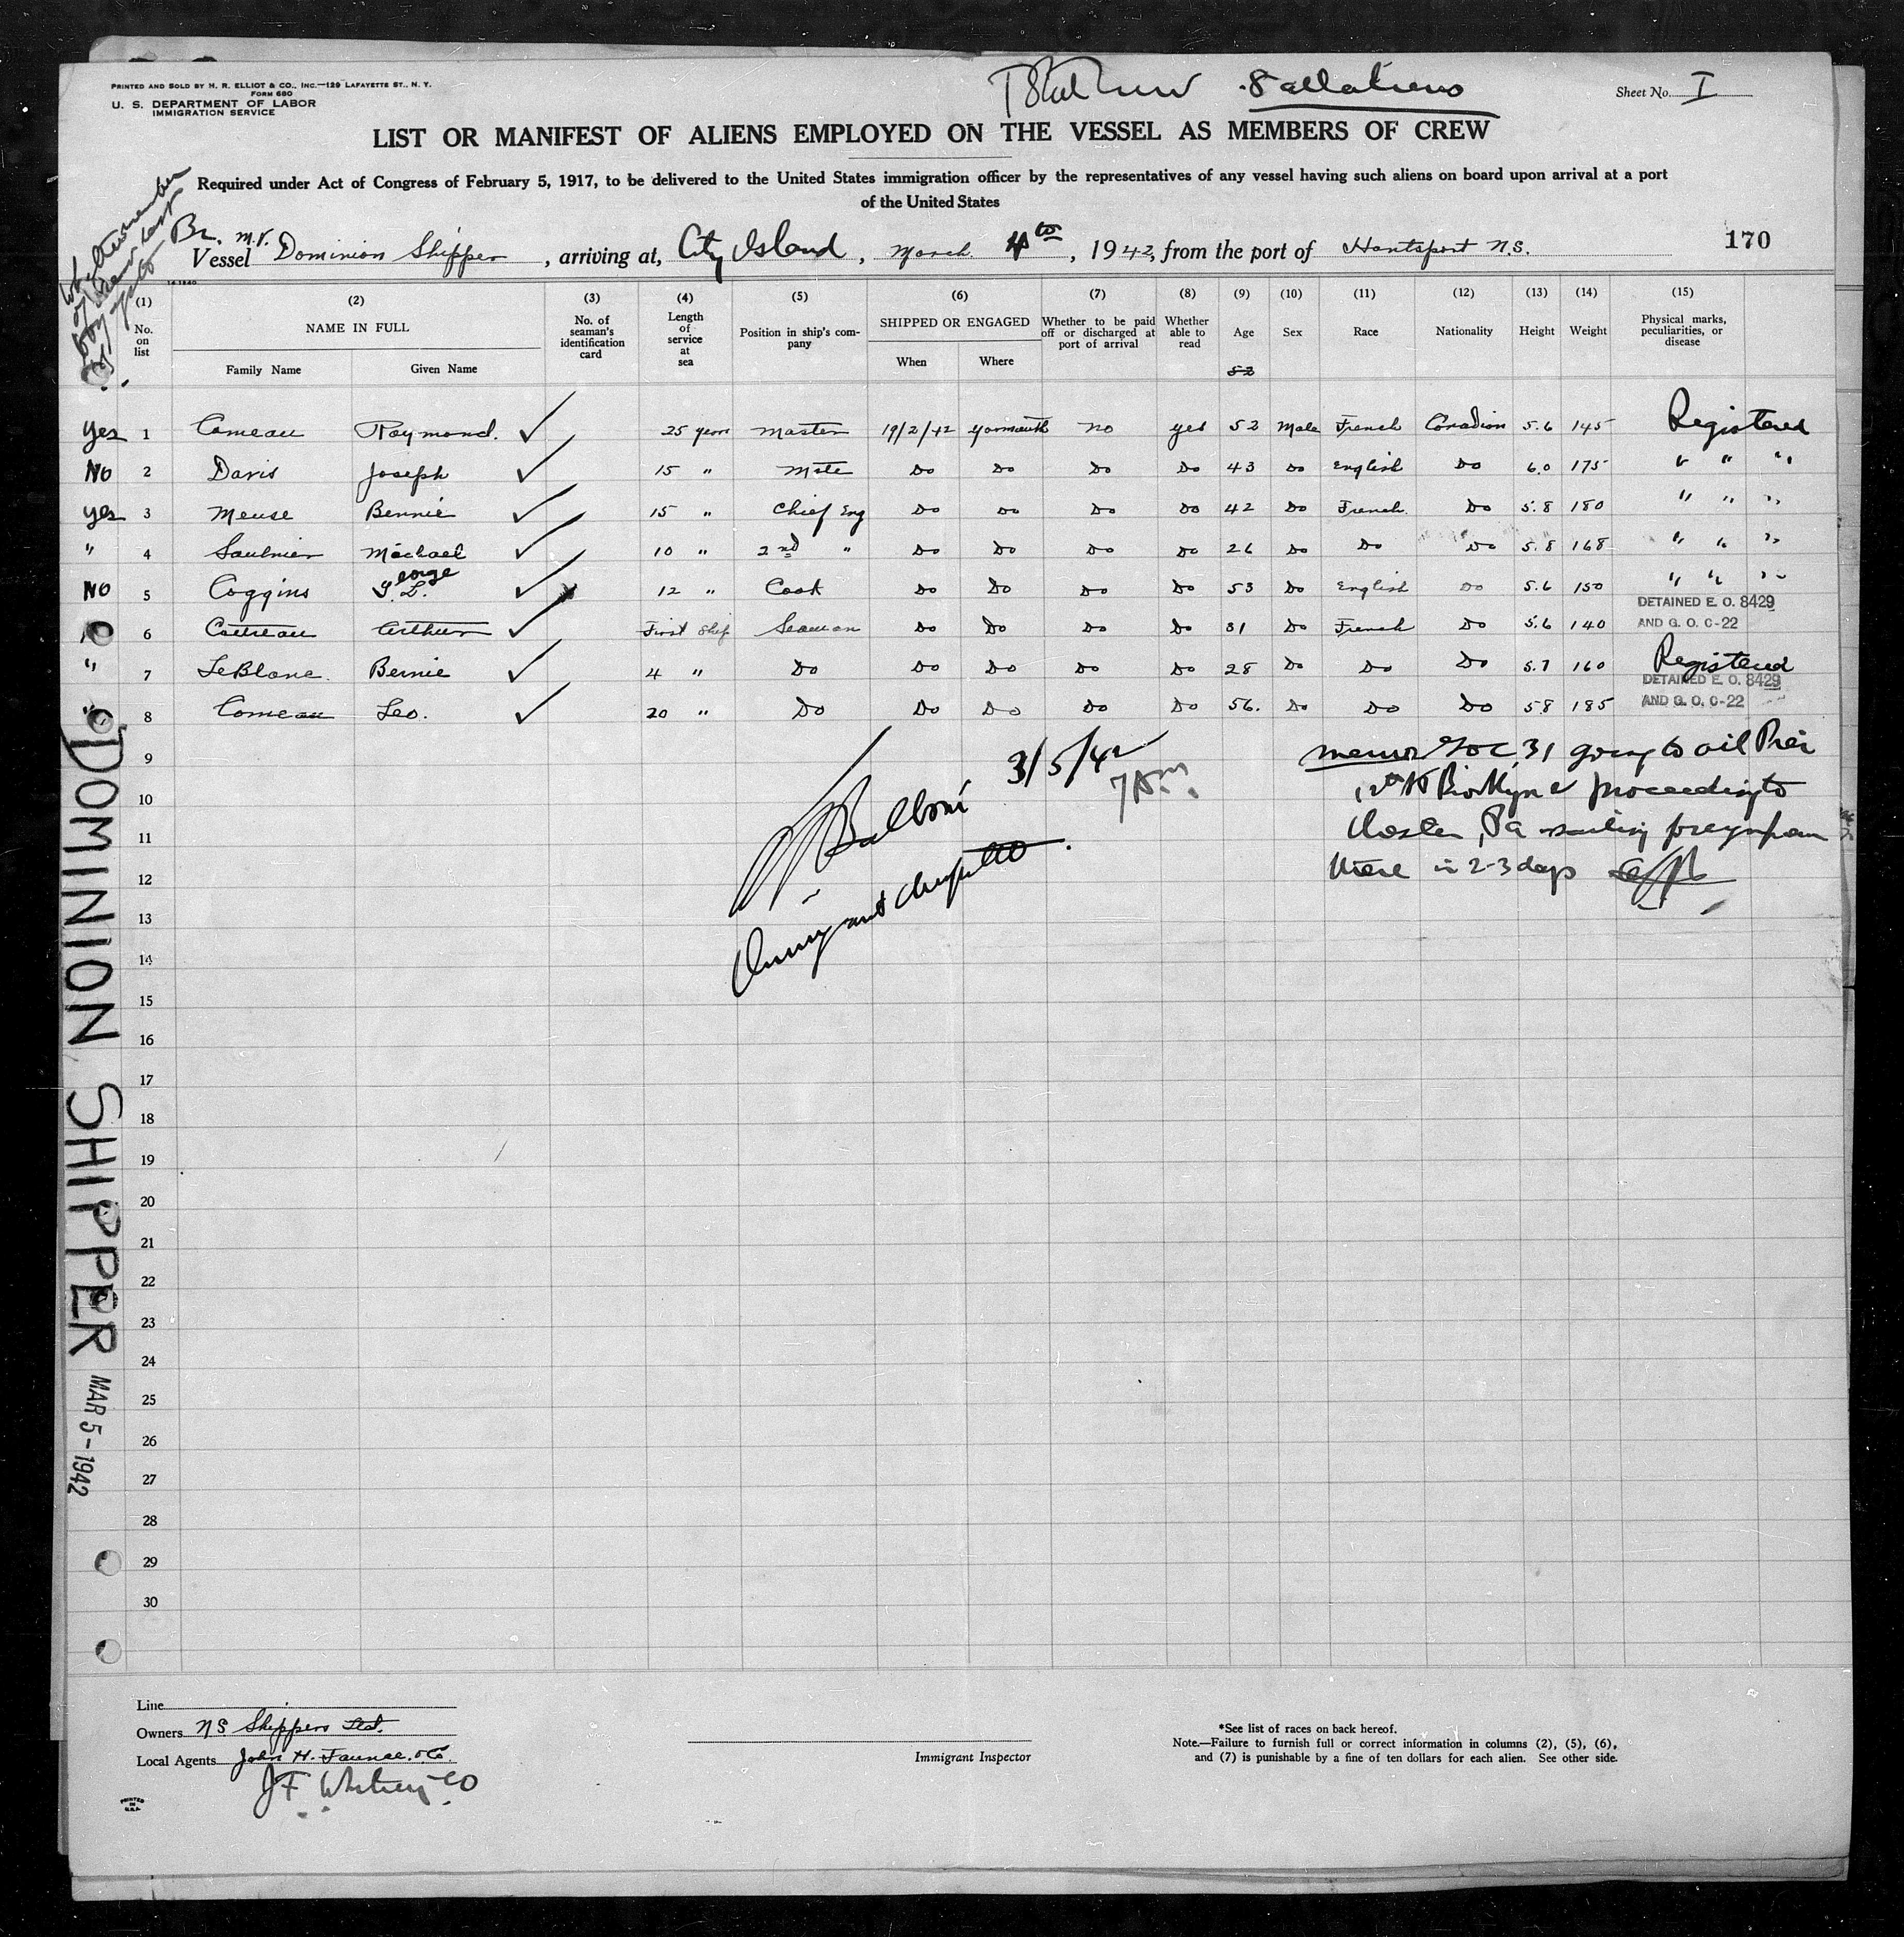 PRINTED AND SOLD BY H. R. ELLIOT & CO., INC.—129 LAFAYETTE ST., N. Y.
FORM 680
U. S. DEPARTMENT OF LABOR
IMMIGRATION SERVICE
8 all aliens
Sheet No. I
LIST OR MANIFEST OF ALIENS EMPLOYED ON THE VESSEL AS MEMBERS OF CREW
Required under Act of Congress of February 5, 1917, to be delivered to the United States immigration officer by the representatives of any vessel having such aliens on board upon arrival at a port
of the United States
Whether member of crew last voy. to
Br. M.V.
Vessel Dominion Shipper, arriving at, City Island, March 4th, 1942, from the port of Hantsport N.S. 170
(1) (2) (3) (4) (5) (6) (7) (8) (9) (10) (11) (12) (13) (14) (15)
No. on list
NAME IN FULL
Family Name
Given Name
No. of seaman's identification card
Length of service at sea
Position in ship's company
SHIPPED OR ENGAGED
When
Where
Whether to be paid off or discharged at port of arrival
Whether able to read
Age
Sex
Race
Nationality
Height
Weight
Physical marks, peculiarities, or disease
52
Yes 1 Comeau Raymond. 25 years Master 19/2/42 Yarmouth No yes 52 Male French Canadian 5.6 145 Registered
No 2 Davis Joseph 15 " Mate Do Do Do Do 43 Do English Do 6.0 175 " " "
Yes 3 Meuse Bennie 15 " Chief Eng Do Do Do Do 42 Do French Do 5.8 180 " " "
" 4 Saulnier Michael 10 " 2nd " Do Do Do Do 26 Do Do Do 5.8 168 " " "
No 5 Coggins George L. 12 " Cook Do Do Do Do 53 Do English Do 5.6 150 " " "
DETAINED E. O. 8429
6 Cottreau Arthur First Ship Seaman Do Do Do Do 31 Do French Do 5.6 140 AND G. O. C-22
" 7 LeBlanc Bernie 4 " Do Do Do Do Do 28 Do Do Do 5.7 160 Registered
DETAINED E. O. 8429
" 8 Comeau Leo. 20 " Do Do Do Do Do 56. Do Do Do 5 8 185 AND G. O. C-22
9
3/5/42
7 P.M.
Balboni
memo going to oil Pier
10
Brooklyn & proceeding to
11
Chester, Pa sailing foreign from
12
there in 2-3 days
13
14
15
16
17
18
19
20
21
22
23
24
25
26
27
28
29
30
DOMINION SHIPPER
MAR 5-1942
Line
Owners NS Shippers Ltd.
Local Agents John H. Faunce. & Co.
J F Whitney CO
Immigrant Inspector
*See list of races on back hereof.
Note.—Failure to furnish full or correct information in columns (2), (5), (6),
and (7) is punishable by a fine of ten dollars for each alien. See other side.
PRINTED IN U.S.A.